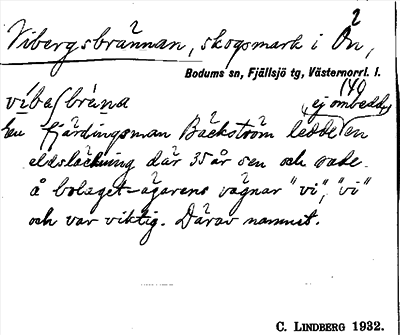 Vibergsbrännan, skogsmark i Ön,
Bodums sn, Fjällsjö tg, Västernorrl. l.
vi᷄bas̷brä̀na
(ej ombedd)
En fjärdingsman Bäckström ledde en
eldsläckning där 35 år sen och sade
å bolaget-ägarens vägnar "vi", "vi"
och var viktig. Därav namnet.
C. LINDBERG 1932.